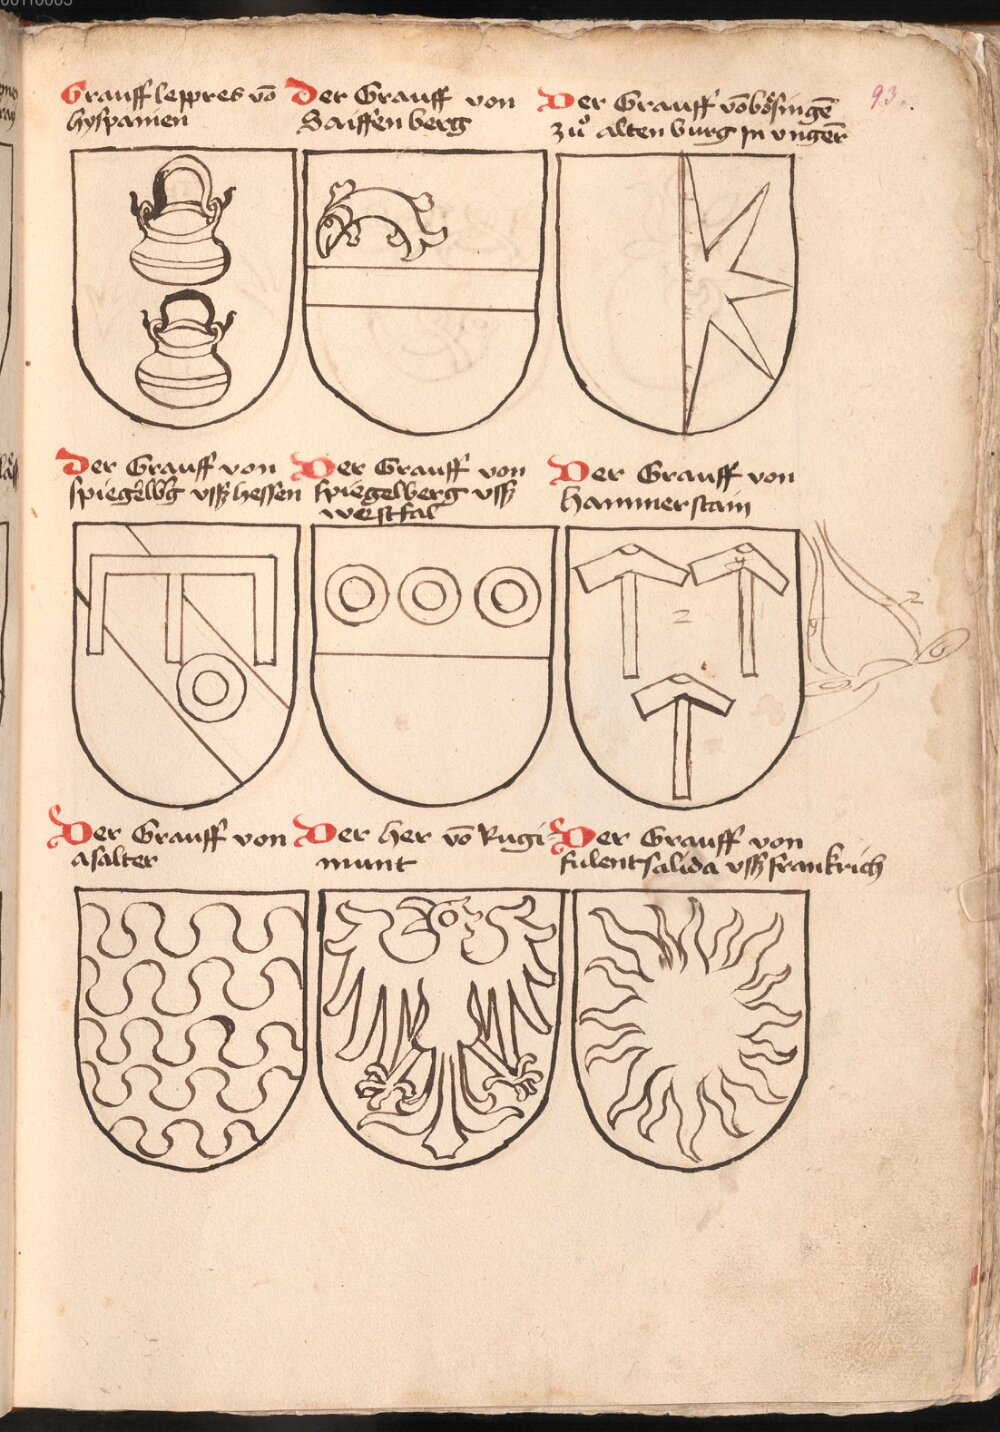 00110005
93.
Grauff leppres vō
hyspanien
Der Grauff von
Saiffenberg
Der Grauff vō bösingē
zů altenburg jn vngerr̄
Der Grauff von
spiegelb̄g vsß hessen
Der Grauff von
spiegelberg vsß
westfal
Der Grauff von
Hammerstain
2
Der Grauff von
asalter
Der her vō Rugi-
munt
Der Grauff von
fulentsalida vsß frankrich